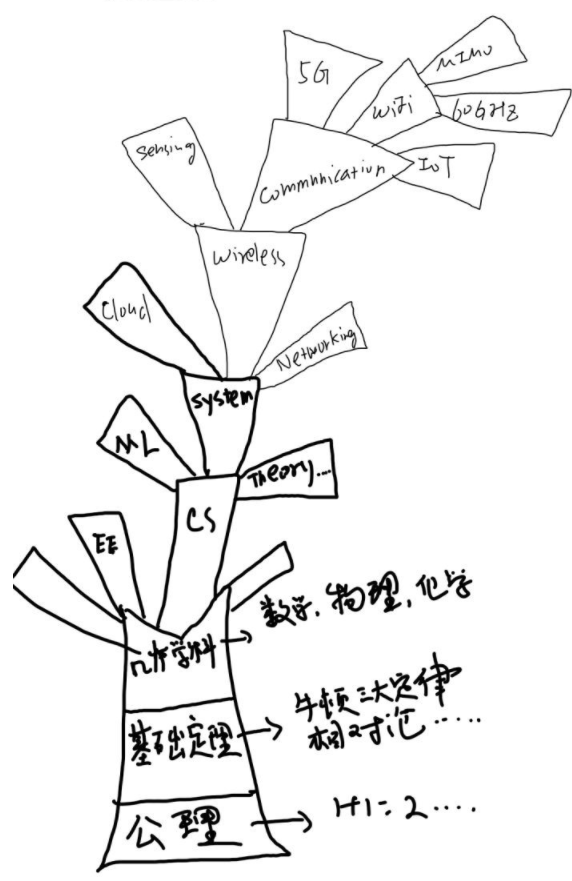 5G
MIMO
WiFi
60GHZ
Sensing
Communication
IoT
Wireless
Cloud
Networking
System
ML
Theory....
CS
EE
数学，物理，化学
学科
牛顿三大定律
基础定理
相对论.....
公理
1+1=2....